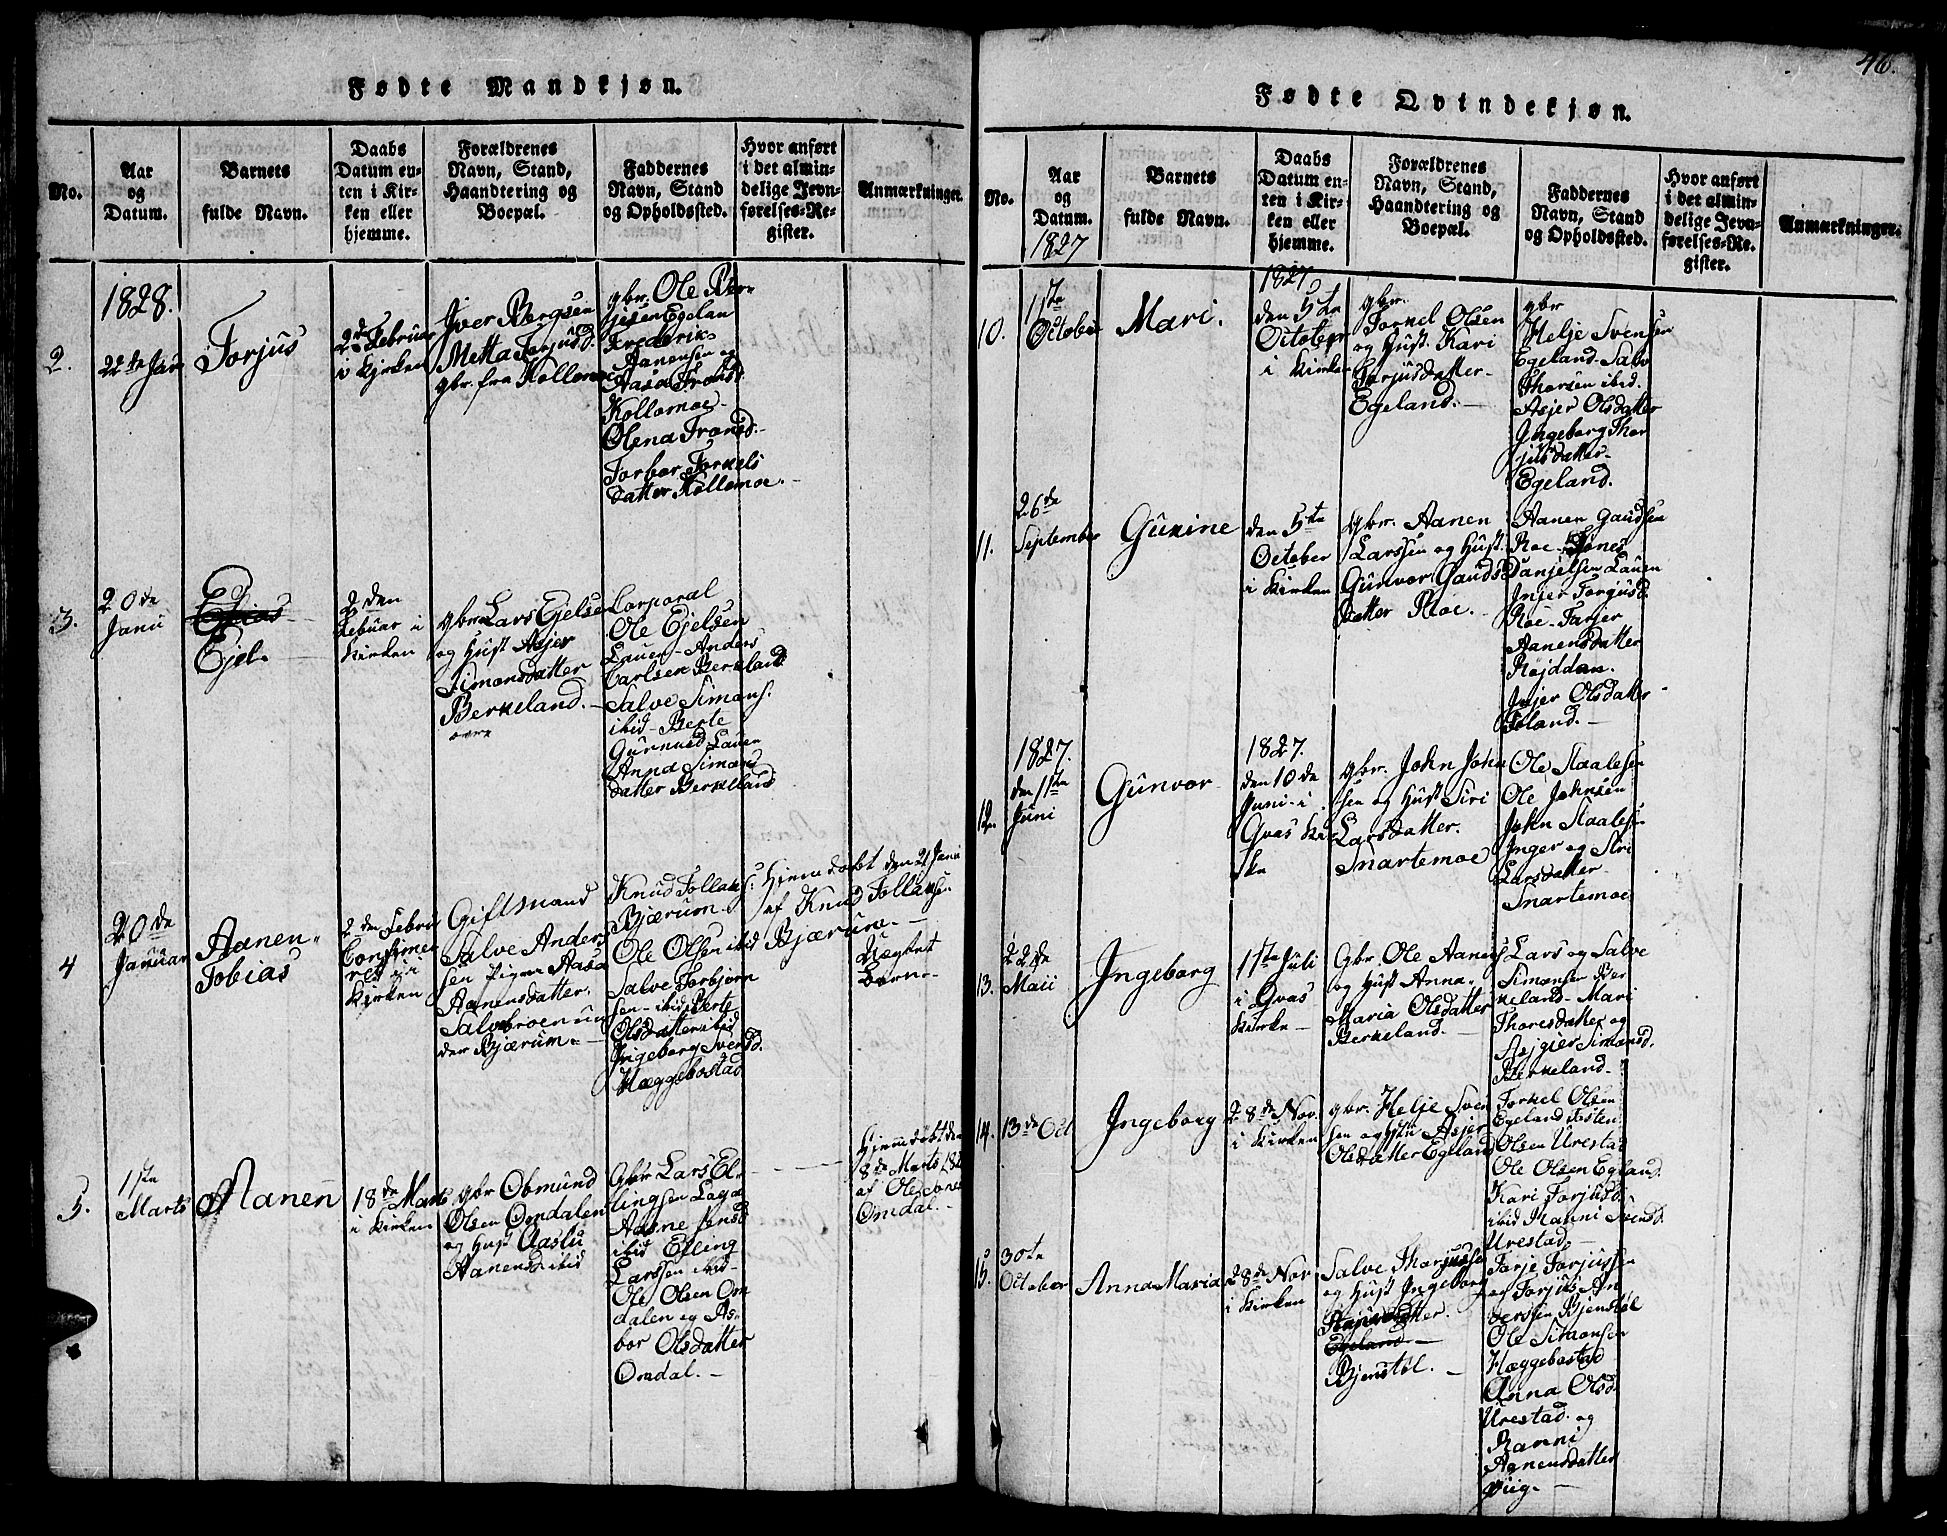 Fødte Mandkjøn.
No.
Aar
og
Datum.
Barnets
fulde Navn.
Daabs
Datum en-
ten i Kir-
ken eller
hjemme.
Forældrenes
Navn, Stand,
Haandtering og
Boepæl.
Faddernes
Navn, Stand
og Opholdssted.
Hvor anført
i det almin-
delige Jevn-
førelses-Re-
gister.
Anmærkninger.
1828.
2.
22de Jan
Torjus
2de Februar
i Kirken
Iver Bergsen
Metta Torjusd.
gbr. fra Kollemoe
gbr. Ole Ber-
gisen Egelan
Frederik
Aanensen og
Aasa Tronsd.
Kollomoe
Olena Tronsd.
Torbor Torkels
datter Kollemoe.
3.
20de
Janu
Ejel.
2den
Februar i
Kirken
gbr Lars Ejelse
og Hust Asjer
Simonsdatter
Berkeland.
Corporal
Ole Ejelsen
Lauen Anders
Carlsen Berkeland
Salve Simons.
ibid Berte
Lauen
Anna Simons
datter Berkeland
4
20de
Januar
Aanen
Tobias
2den Febru
Confirme
ret i
Kirken
Giftmand
Salve Anders
sen Pigen Aasa
Aanensdatter
Salvebroen un
der Bjærum.
Knud Tollaks.
Bjærum.
Ole Olsen ibid
Salve Torbjørn
sen ibid Berte
Olsdatter ibid
Ingeborg Svensd.
Hæggebostad
Hjemdøbt den 21 Janu
af Knud Tollaksen
Bjærum.
Uægte
Barn
5.
1ste
Marts
Aanen
18de Marts
i Kirken
gbr Obmund
Olsen Omdalen
og Hust Aaslu
Aanensd ibid
Gbr Lars El-
lingsen Laga
Aasne Jensd
ibid Elling
Larssen ibid
Ole Olsen Om
dalen og As-
bor Olsdatter
Omdal.
Hjemdøbt den
8de Marts 182
af Ole Jons
Omdal.
46.
Fødte Qvindekjøn.
No.
Aar
og
Datum.
1827
Barnets
fulde Navn.
Daabs
Datum en-
ten i Kir-
ken eller
hjemme.
Forældrenes
Navn, Stand,
Haandtering og
Boepæl.
Faddernes
Navn, Stand
og Opholdssted.
Hvor anført
i det almin-
delige Jevn-
førelses-Re-
gister.
Anmærkninger.
10.
1ste
October
Mari.
1827
den 5te
October
i Kirken
gbr.
Torkel Olsen
og Hust. Kari
Torjusdatter
Egeland.
gbr
Helje Svensen
Egeland Salv
Thorsen ibid.
Asjer Olsdatter
Ingeborg Thor
jusdatter
Egeland.
11.
26de
September
Gunine
den 5te
October
i Kirken
gbr. Aanen
Larssen og Hust.
Gunvor Gauds
datter Roe.
Aanen Gaudsen
Roe Jones
Danjelsen Lauen
Injer Torjusd.
Roe Tarjer
Aanensdatter
Røjddan.
Injer Olsdatter
12
1827.
den 1ste
Juni
Gunvor
1827.
den 10de
Juni i
Qvas Kir
ke
gbr. John John
sen og Hust Siri
Larsdatter.
Snartemoe
Ole Staalesen
Ole Johnsen
John Staalesen
Inger og Siri
Larsdatter
Snartemoe
13.
22de
Maii
Ingeborg
1ste Juli
i Qvas
Kirke
Gbr. Ole Aanens
og Hust Anna
Maria Olsdatter
Berkeland.
Lars og Salve
Simonsen Ber
keland Mari
Thoresdatter og
Asjgier Simonsd.
Berkeland.
14.
13de Oct
Ingeborg
28de Nov.
i Kirken
gbr. Helje Sven
sen og Hu Asjer
Olsdatter Egeland
Torkel Olsen
Egeland Tosten
Olsen Urestad
Ole Olsen Egland.
Kari Torjusd.
ibid Ranni Svensd.
Urestad.
15.
30te
October
Anna Maria
28de Nov
i Kirken
Salve Thorjussen
og Hust Ingeborg
Egeland
Bjenstøl.
Tarje Torjussen
og Torjus An
dersen Bjenstøl
Ole Simonsen
Hæggebostad
Anna Olsd.
Urestad og
Ranni
Aanensdatter